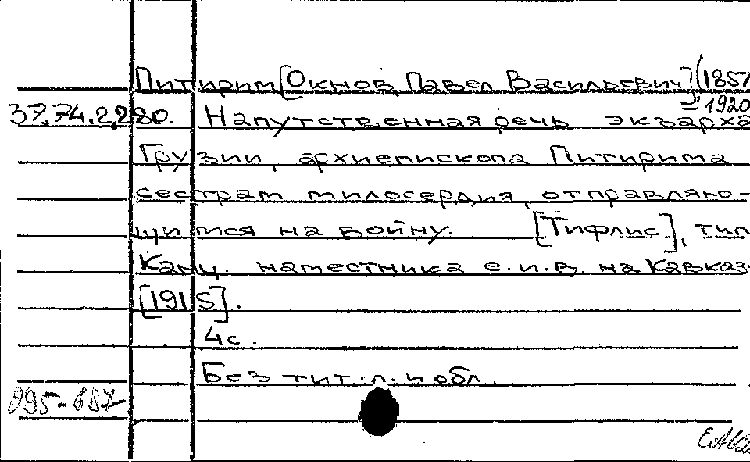 Питирим [Окнов Павел Васильевич] (1857
1920
37.74.2.280. Напутственная речь экзарха
Грузии, архиепископа Питирима
сестрам милосердия, отправляю-
щимся на войну. [Тифлис], тип.
Канц. наместника е.и.в. на Кавказ
[1915].
4с.
Без тит. л. и обл.